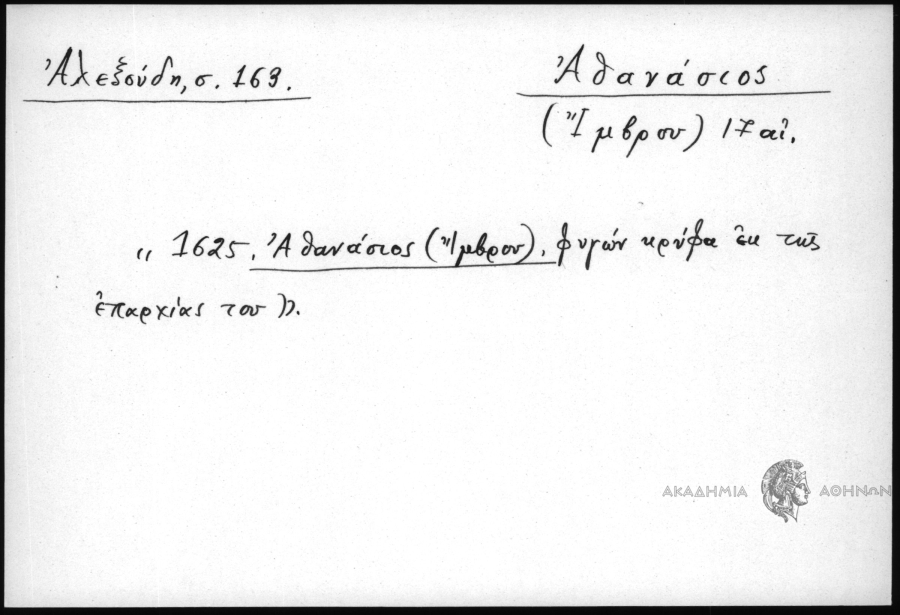 Ἀλεξούδη, σ. 163.
Ἀθανάσιος
(Ἴμβρου) 17 αἰ.
« 1625. Ἀθανάσιος (Ἴμβρου), φυγών κρύφα ἐκ τῆς
ἐπαρχίας του ».
ΑΚΑΔΗΜΙΑ ΑΘΗΝΩΝ